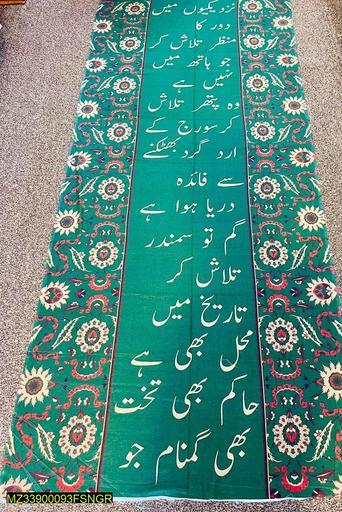 نزدیکیوں میں
دور کا
منظر تلاش کر
جو ہاتھ میں
نہیں ہے
وہ پتھر تلاش
کر سورج کے
ارد گرد بھٹکنے
سے فائدہ
دریا ہوا ہے
گم تو سمندر
تلاش کر
تاریخ میں
محل بھی ہے
حاکم بھی تخت
بھی گمنام جو
MZ33900093FSNGR